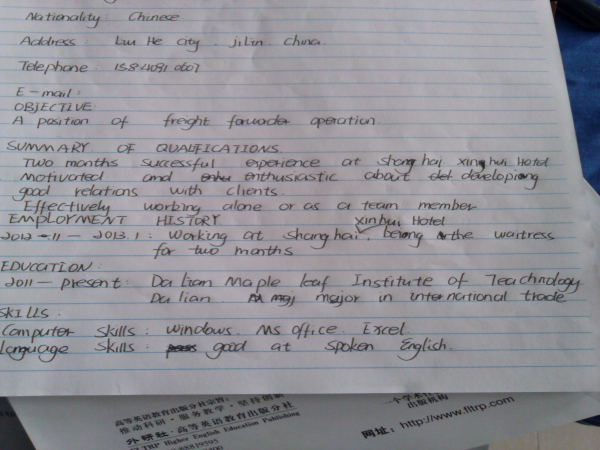 Nationality: Chinese
Address: Liu He city. jilin. China.
Telephone: 158 4091 0607
E-mail:
OBJECTIVE:
A position of freight forwarder operation
SUMMARY OF QUALIFICATIONS.
Two months successful experience at shang hai xing hui Hotel
Motivated and enthusiastic about developing
good relations with clients.
Effectively working alone or as a team member
EMPLOYMENT HISTORY
xinhui Hotel
2012-11-2013.1: Working at shanghai, being the waitress
for two months
EDUCATION:
2011-present: Da lian Maple leaf Institute of Teachnology
Da lian major in international trade
SKILLS:
Computer skills: windows. Ms office. Excel.
language skills: good at spoken English.
高等英语教育出版分社宗旨:
推动科研·服务教学·坚持创新
外研社·高等英语教育出版分社
FLTRP Higher English Education Publishing
出版机构
网址: http://www.fltrp.com